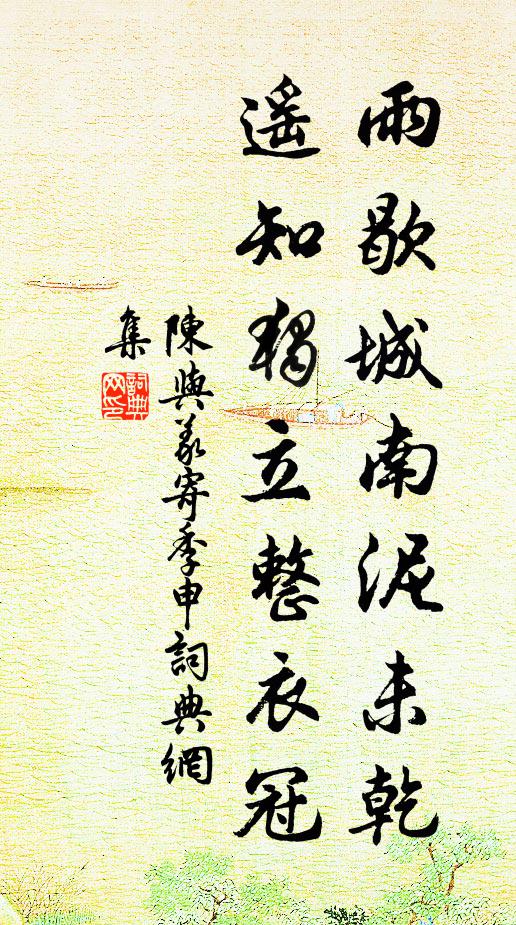 雨歇城南泥未乾
遥知獨立整衣冠
陳與義寄季申詞典網
集
詞典网印